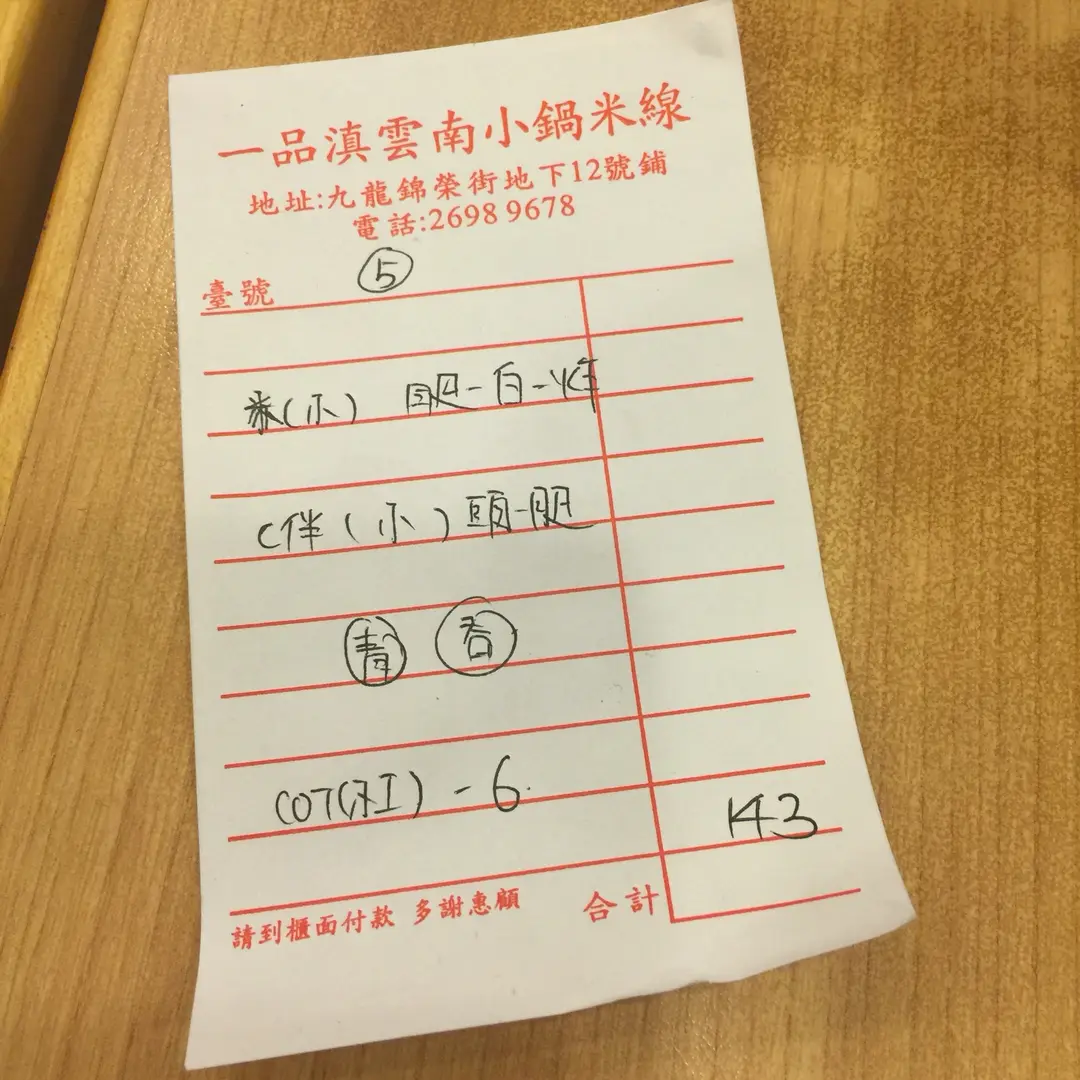 一品滇雲南小鍋米線
地址:九龍錦榮街地下12號鋪
電話:2698 9678
臺號 5
米(小) 腿-白-炸
C伴(小)
青
COT(红) - 6.
143
請到櫃面付款 多謝惠顧 合計